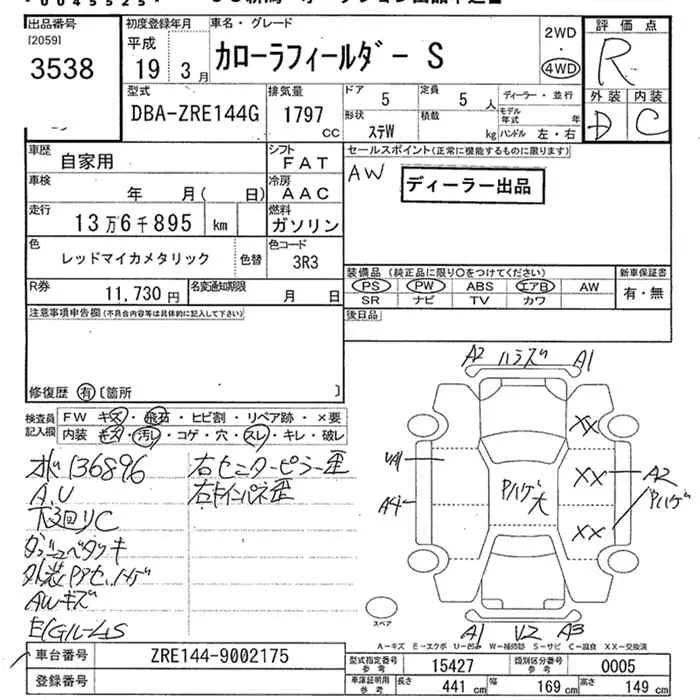 出品番号
[2059]
3538
初度登録年月
平成
19 3月
車名・グレード
カローラフィールダー S
2WD
・
4WD
評価点
R
外装 内装
D C
型式
DBA-ZRE144G
排気量
1797
CC
ドア
5
定員
5 人
ディーラー・並行
形状
ステW
積載
kg
モデル年式
年
ハンドル 左・右
車歴
自家用
シフト
FAT
セールスポイント(正常に機能するものに限ります)
AW
ディーラー出品
車検
年 月( 日)
冷房
AAC
走行
13万6千895 km
燃料
ガソリン
色
レッドマイカメタリック
色替
色コード
3R3
装備品(純正品に限り○をつけてください)
新車保証書
PS PW ABS エアB AW
有・無
SR ナビ TV カワ
R券
11,730円
名変通知期限
月 日
後日品
注意事項申告欄(不具合内容等は具体的に記入して下さい)
修復歴 有 [箇所 ]
検査員
記入欄
FW キズ・飛石・ヒビ割・リペア跡・×要
内装 キズ・汚レ・コゲ・穴・スレ・キレ・破レ
136896
右センターピラー歪
A.U
右インパネ歪
下回りC
AWキズ
A2 ハラズ A1
XX
XX A2
Pハゲ
XX
Pハゲ大
A4
スペア
A1 V2 A3
A-キズ E-エクボ U-凹み W-補修跡 S-サビ C-腐食 XX-交換済
車台番号
ZRE144-9002175
型式指定番号
参考
15427
類別区分番号
参考
0005
登録番号
車庫証明用
参考
長さ
441 cm
幅
169 cm
高さ
149 cm